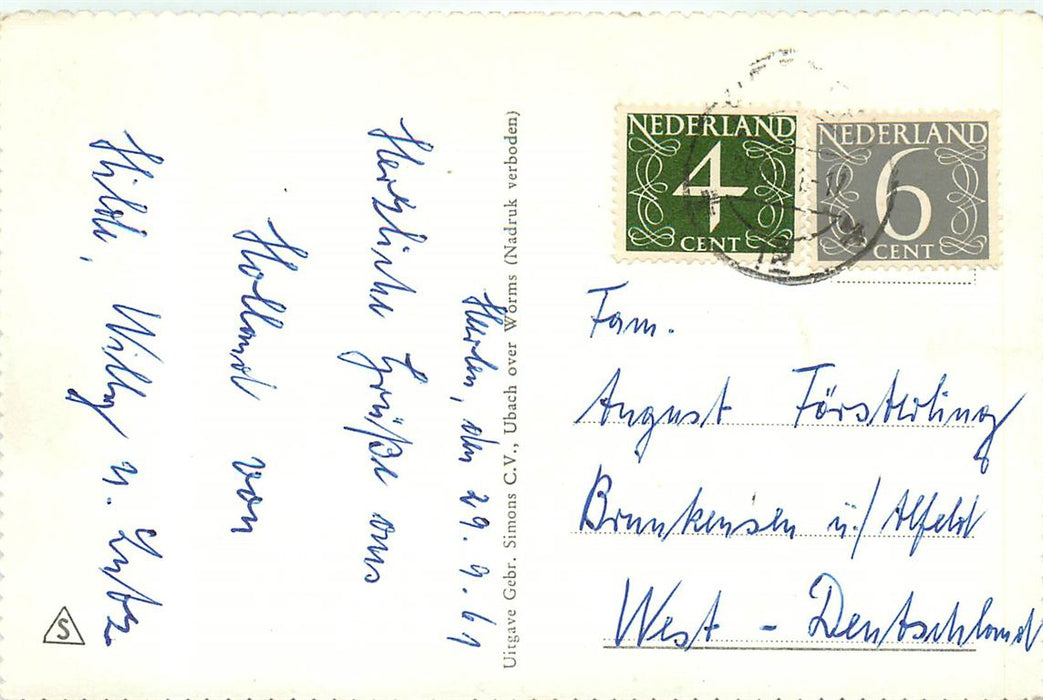 Heerlen, den 29.9.61
Herzliche Grüße aus
Holland von
Hilde, Willy u. Lutz.
Uitgave Gebr. Simons C.V., Ubach over Worms (Nadruk verboden)
S
NEDERLAND
4
CENT
NEDERLAND
6
CENT
Fam.
August Försterling
Brunkensen ü./Alfeld
West - Deutschland